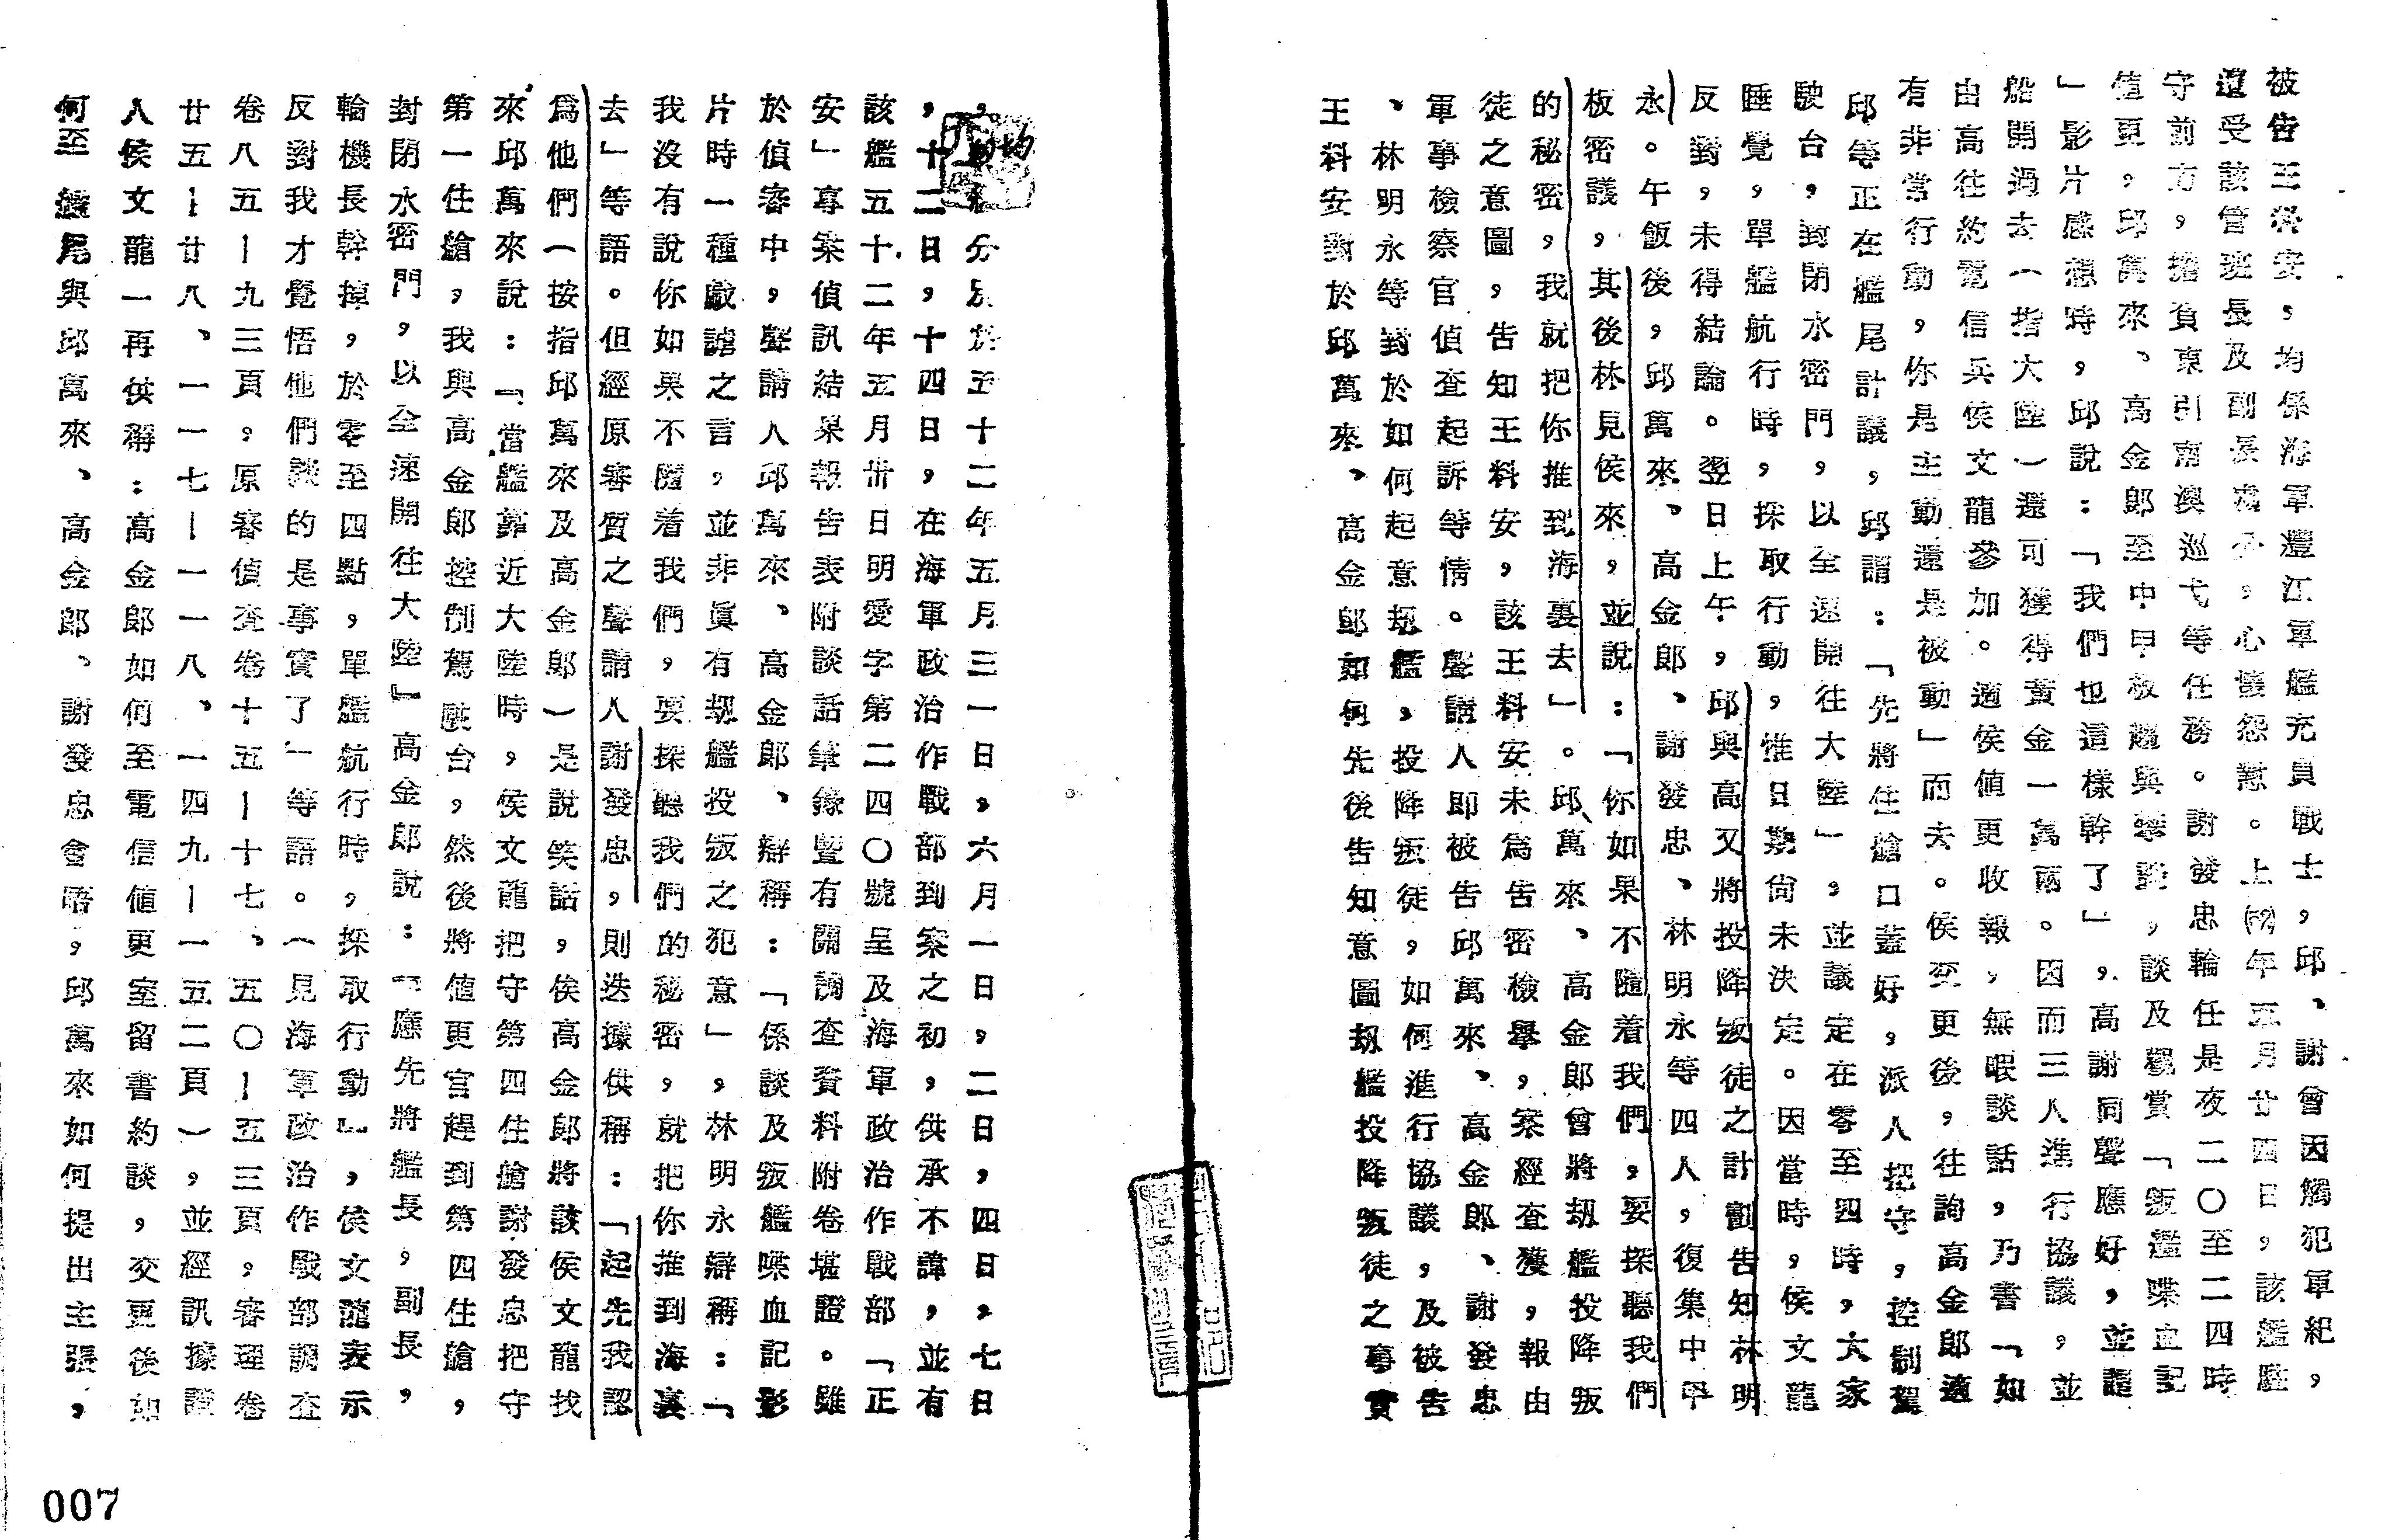 被告王科安，均係海軍灃江軍艦充員戰士，邱、謝曾因觸犯軍紀，
遭受該管班長及副長處分，心懷怨懟。上(52)年五月廿四日，該艦駐
守前方，擔負東引南澳巡弋等任務。謝發忠輪任是夜二〇至二四時
值更，邱萬來、高金郎至中甲板趨與攀談，談及觀賞「叛艦喋血記
」影片感想時，邱說：「我們也這樣幹了」，高謝同聲應好，並謂
船開過去（指大陸）還可獲得黃金一萬兩。因而三人進行協議，並
由高往約電信兵侯文龍參加。適侯值更收報，無暇談話，乃書「如
有非常行動，你是主動還是被動」而去。侯至更後，往詢高金郎適
邱等正在艦尾計議，邱謂：「先將住艙口蓋好，派人把守，控制駕
駛台，封閉水密門，以全速開往大陸」。並議定在零至四時，大家
睡覺，單艦航行時，採取行動，惟日期尚未決定。因當時，侯文龍
反對，未得結論。翌日上午，邱與高又將投降叛徒之計劃告知林明
永。午飯後，邱萬來、高金郎、謝發忠、林明永等四人，復集中甲
板密議，其後林見侯來，並說：「你如果不隨着我們，要探聽我們
的秘密，我就把你推到海裏去」。邱萬來、高金郎曾將刼艦投降叛
徒之意圖，告知王科安，該王科安未為告密檢舉，案經查獲，報由
軍事檢察官偵查起訴等情。聲請人即被告邱萬來、高金郎、謝發忠
、林明永等對於如何起意刼艦，投降叛徒，如何進行協議，及被告
王科安對於邱萬來、高金郎如何先後告知意圖刼艦投降叛徒之事實
，分別於五十二年五月三一日，六月一日，二日，四日，七日
，十二日，十四日，在海軍政治作戰部到案之初，供承不諱，並有
該艦五十二年五月卅日明愛字第二四〇號呈及海軍政治作戰部「正
安」專案偵訊結果報告表附談話筆錄暨有關調查資料附卷堪證。雖
於偵審中，聲請人邱萬來、高金郎、辯稱：「係談及叛艦喋血記影
片時一種戲謔之言，並非眞有刼艦投叛之犯意」，林明永辯稱：「
我沒有說你如果不隨着我們，要探聽我們的秘密，就把你推到海裏
去」等語。但經原審質之聲請人謝發忠，則迭據供稱：「起先我認
爲他們（按指邱萬來及高金郎）是說笑話，侯高金郎將該侯文龍找
來邱萬來說：「當艦靠近大陸時，侯文龍把守第四住艙謝發忠把守
第一住艙，我與高金郎控制駕駛台，然後將值更官趕到第四住艙，
封閉水密門，以全速開往大陸」高金郎說：「應先將艦長，副長，
輪機長幹掉，於零至四點，單艦航行時，採取行動」，侯文龍表示
反對我才覺悟他們談的是事實了」等語。（見海軍政治作戰部調查
卷八五－九三頁。原審偵查卷十五－十七、五〇－五三頁，審理卷
廿五－廿八、一一七－一一八、一四九－一五二頁），並經訊據證
人侯文龍一再供稱：高金郎如何至電信值更室留書約談，交更後如
何至艦尾與邱萬來、高金郎、謝發忠會晤，邱萬來如何提出主張，
007